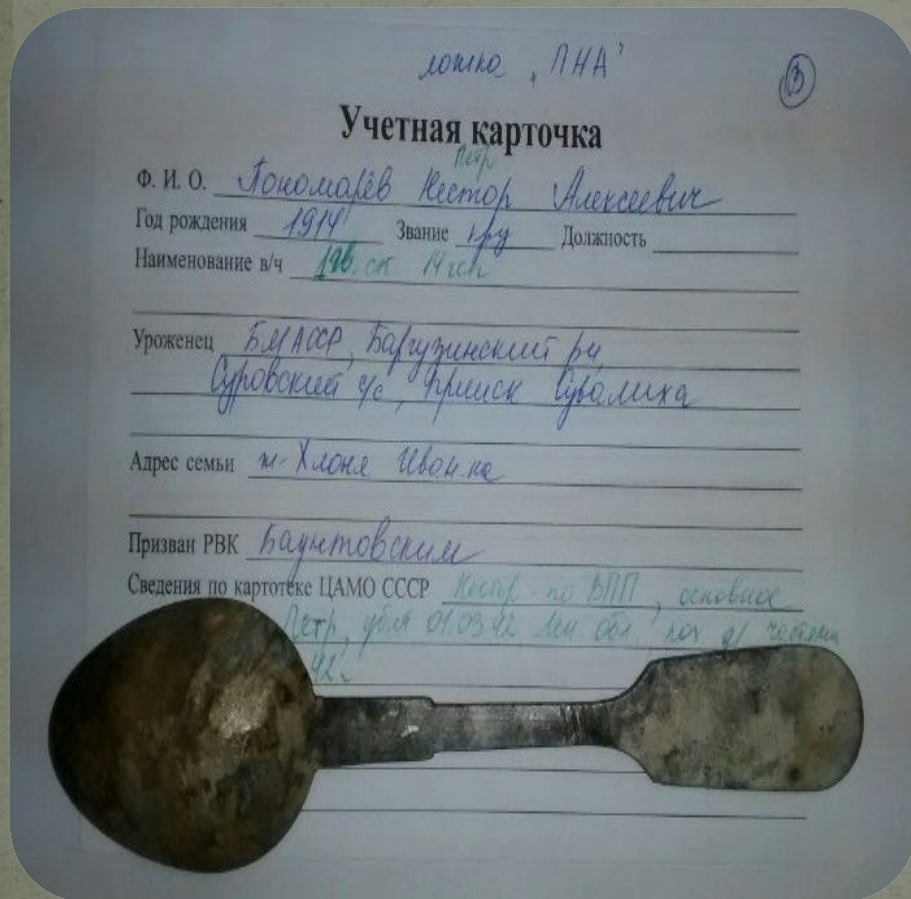 ложка „ПНА"
3
Учетная карточка
Петр
Ф. И. О. Пономарёв Нестор Алексеевич
Год рождения 1914 Звание кр Должность
Наименование в/ч ск 14
Уроженец БМАССР, Баргузинский р-н,
Суровский с/с, прииск
Адрес семьи ж-Хлоня Ивон-на
Призван РВК Баунтовским
Сведения по картотеке ЦАМО СССР по ВПП, основное
Петр, убит 01.03.42 Лен. обл.
42г